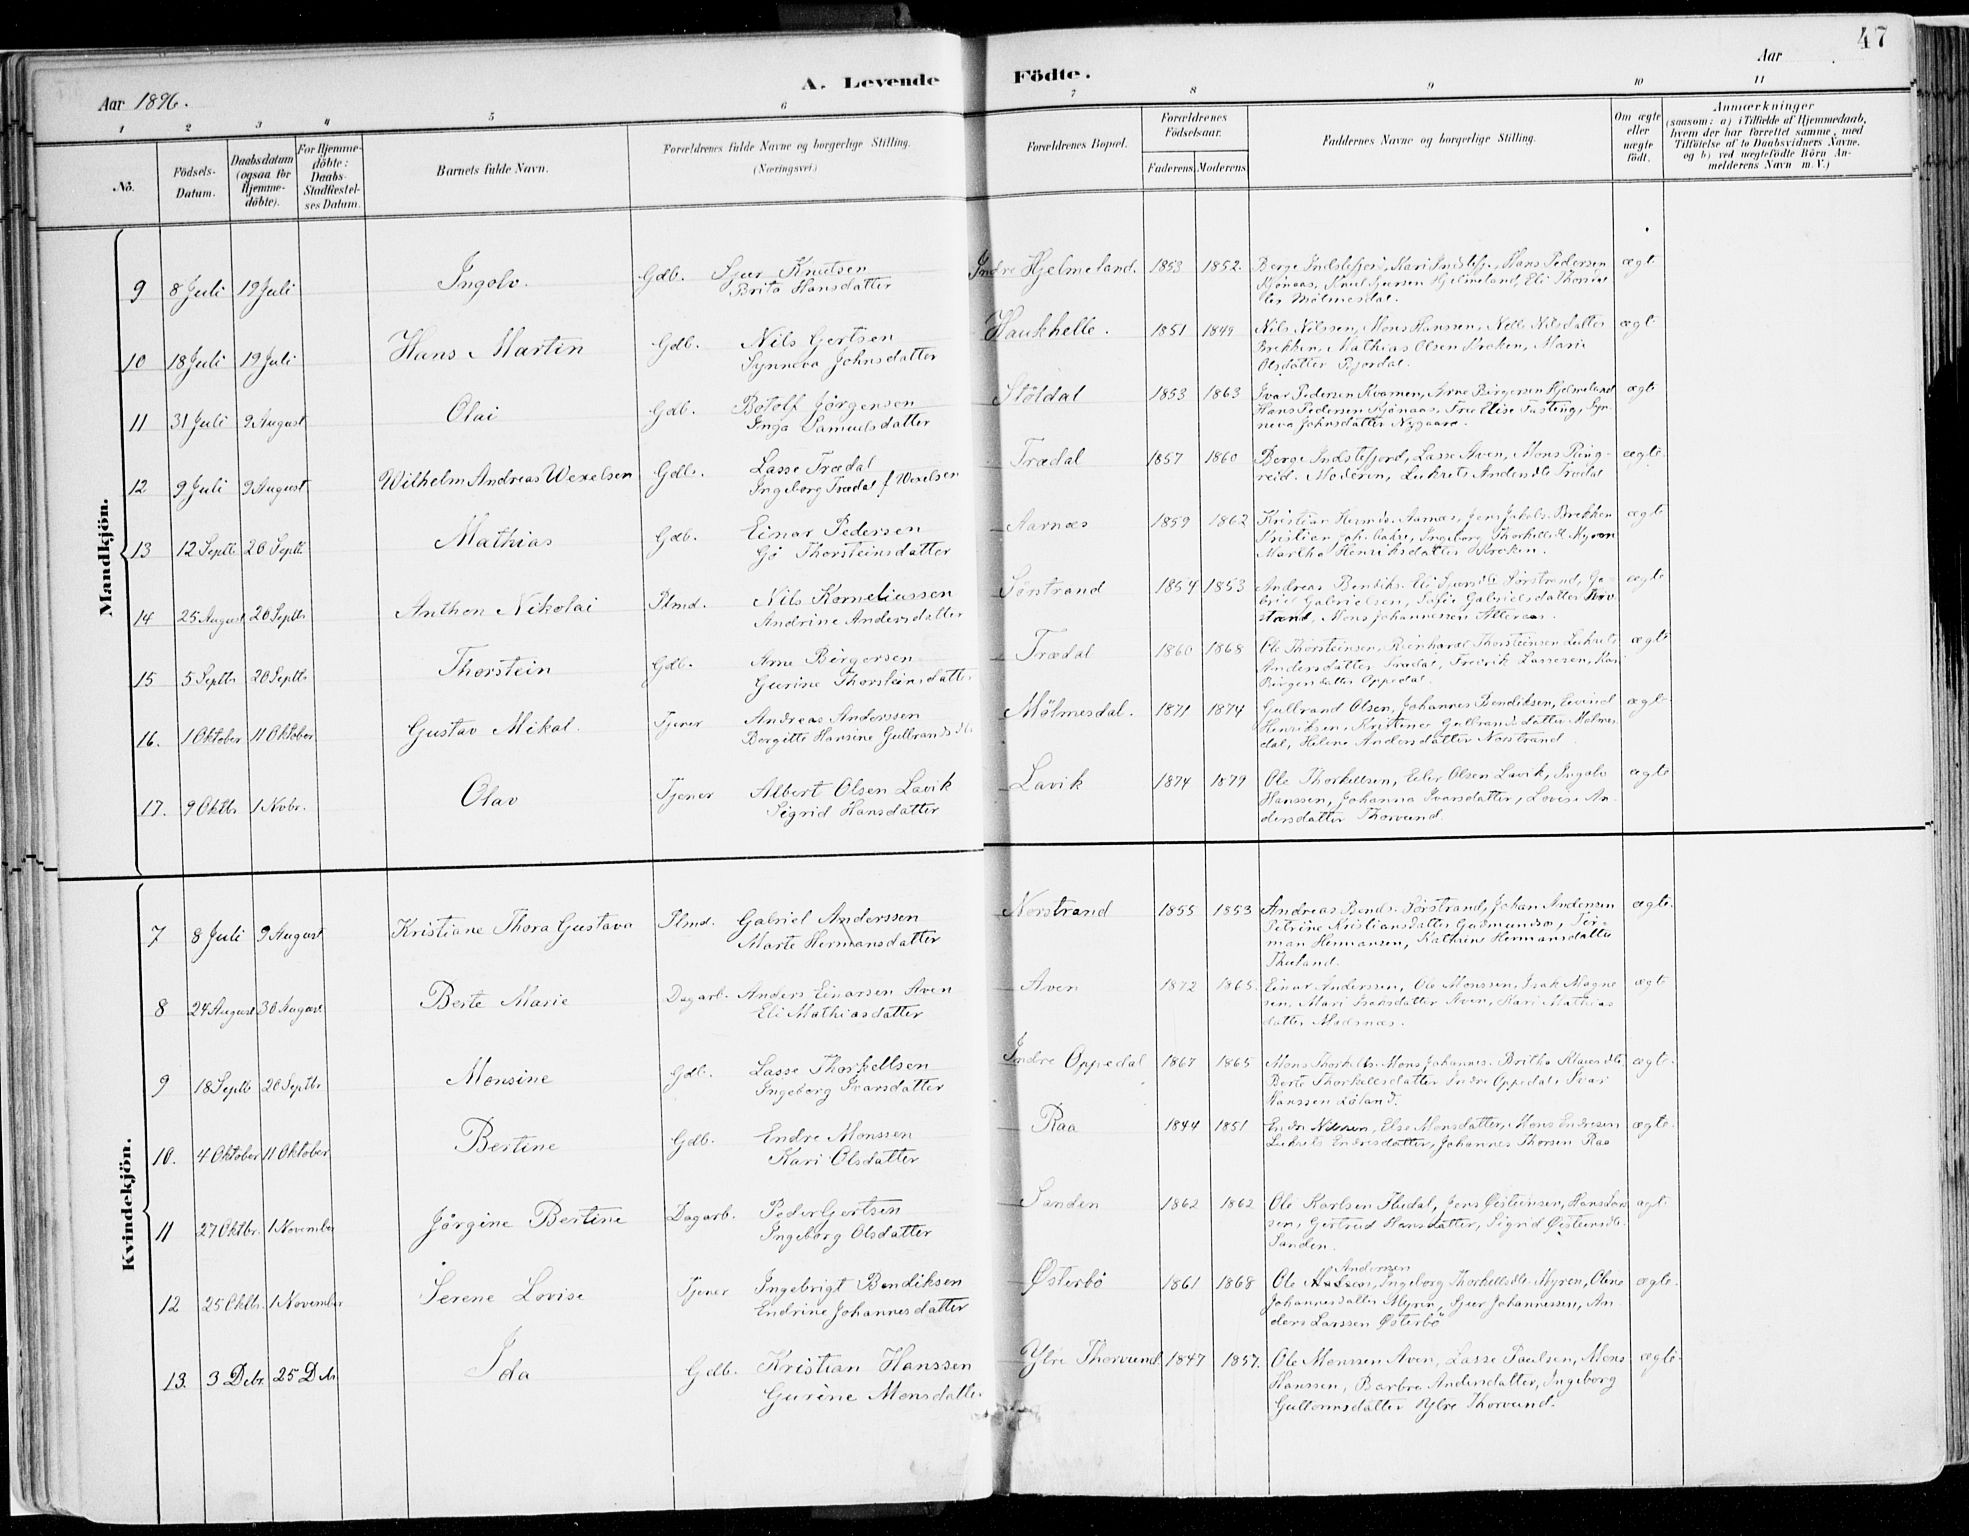 47
Aar 1896.
A. Levende Födte.
Aar
1 2 3 4 5 6 7 8 9 10 11
No.
Födsels-Datum.
Daabsdatum (ogsaa for Hjemme-döbte).
For Hjemme-döbte: Daabs-Stadfæstel-ses Datum.
Barnets fulde Navn.
Forældrenes fulde Navne og borgerlige Stilling.
(Næringsvei)
Forældrenes Bopæl.
Forældrenes Födselsaar.
Faderens. Moderens.
Faddernes Navne og borgerlige Stilling.
Om ægte eller uægte födt.
Anmærkninger
(saasom: a) i Tilfælde af Hjemmedaab,
hvem der har forrettet samme, med
Tilföielse af to Daabsvidners Navne,
og b) ved uægtefödte Börn An-
melderens Navn m. V.)
Mandkjön.
9 8 Juli 19 Juli Ingolv. Gdb. Sjur Knutsen Indre Hjelmeland. 1853 1852. Berge Indstefjord, Kari Indstefj., Hans Pedersen ægte
Brita Hansdatter
Hjelmeland, Eli
Mölmesdal.
10 18 Juli 19 Juli Hans Martin Gdb. Nils Gertsen Haukhelle. 1851 1849 Nils Nilssen, Mons Hanssen, Nille Nilsdatter ægte
Synneva Johnsdatter
Brekken, Mathias Olsen Kroken, Marie
Olsdatter
11 31 Juli 9 August Olai Gdb. Botolf Jörgensen Stöldal 1853 1863 Ivar Pedersen Kvamen, Arne Börgersen Hjelmeland ægte
Inga Samuelsdatter
Hans Pedersen Fru Elise Fasting, Syn-
neva Johnsdatter Nygaard.
12 9 Juli 9 August Wilhelm Andreas Wexelsen Gdb. Lasse Trædal Trædal 1857 1860 Berge Indstefjord, Lasse Aven, Mons Ring- ægte.
Ingeborg Trædal f Wexelsen
reid. Moderen, Lukrets Andersdtr Trædal
13 12 Septb 20 Septb Mathias Gdb. Einar Pedersen Aarnæs 1859 1862 Kristian Aarnæs, Jens Jakobs. Brekken ægte
Gö Thorsteinsdatter
Kristian Ingeborg Thorkellsdtr Myren
Martha Henriksdatter Kroken.
14 25 August 20 Septb Anthon Nikolai Plmd. Nils Korneliussen Sörstrand 1854 1853 Andreas Bendiks. Eli Sörstrand, Ga- ægte
Andrine Andersdatter
briel Gabrielsen, Sofie Gabrielsdatter
strand, Mons Johannessen
15 5 Septbr 20 Septb Thorstein Gdb. Arne Börgersen Trædal 1860 1868 Ole Thorsteinsen, Reinhard Thorsteinsen Lukrets ægte
Gurine Thorsteinsdatter
Andersdatter Trædal, Fredrik Lassesen, Kari
Börgersdatter Oppedal.
16. 1 Oktober 11 Oktober Gustav Mikal. Tjener Andreas Anderssen Mölmesdal. 1871 1874 Gullbrand Olsen, Johannes Bendiksen, Eivind ægte
Bergitte Hansine Gullbrandsdtr
Henriksen, Kristine Gullbrandsdatter Mölmes-
dal, Helene Andersdatter Norstrand
17. 9 Oktbr 1 Novbr. Olav Tjener Albert Olsen Lavik Lavik 1874 1879 Ole Thorkellsen, Eiler Olsen Lavik, Ingolv ægte
Sigrid Hansdatter
Hanssen, Johanna Ivarsdatter, Lovise An-
dersdatter Thorvund.
Kvindekjön.
7 8 Juli 9 August Kristiane Thora Gustava Plmd. Gabriel Anderssen Norstrand 1855 1853 Andreas Bends. Sörstrand, Johan Andersen ægte.
Marte Hermansdatter
Petrine Kristiansdatter
man Hermansen, Kathrine Hermansdatter
8 24 August 30 August Berte Marie Dagarb. Anders Einarsen Aven Aven 1872 1865. Einar Anderssen, Ole Monssen, Isak Magne ægte
Eli Mathiasdatter
sen, Mari Isaksdatter Aven, Kari Mathias
datter Madsnæs.
9 18 Septb 20 Septbr Monsine Gdb. Lasse Thorkellsen Indre Oppedal 1867 1865 Mons Thorkells. Mons Johannes. Britha ægte.
Ingeborg Ivarsdatter
Berte Thorkellsdatter Indre Oppedal, Ivar
Hanssen
10. 4 Oktober 11 Oktober Bertine Gdb. Endre Monssen Raa 1844 1851 Endre Else Monsdatter, Mons Endresen ægte.
Kari Olsdatter
Lukrets Endresdatter, Johannes Thorsen Raa
11 27 Oktbr. 1 November Jörgine Bertine Dagarb. Peder Gertsen Sanden 1862 1862 Ole Karlsen Jens Östeinsen, ægte
Ingeborg Olsdatter
sen, Gertrud Hansdatter, Sigrid Östeinsdtr.
Sanden.
12 25 Oktb. 1 November Serene Lovise Tjener Ingebrigt Bendiksen Österbö 1861 1868 Ole Anderssen, Ingeborg Thorkellsdtr Myren, Oline ægte.
Endrine Johannesdatter
Johannesdatter Myren, Sjur Johannessen, An-
ders Larssen Österbö
13. 3 Debr. 25 Debr Ida Gdb. Kristian Hanssen Ytre Thorvund 1847 1857. Ole Monssen Aven, Lasse Paulsen, Mons ægte
Gurine Monsdatter
Hanssen, Barbra Andersdatter, Ingeborg
Guttormsdatter Ytre Thorvund.